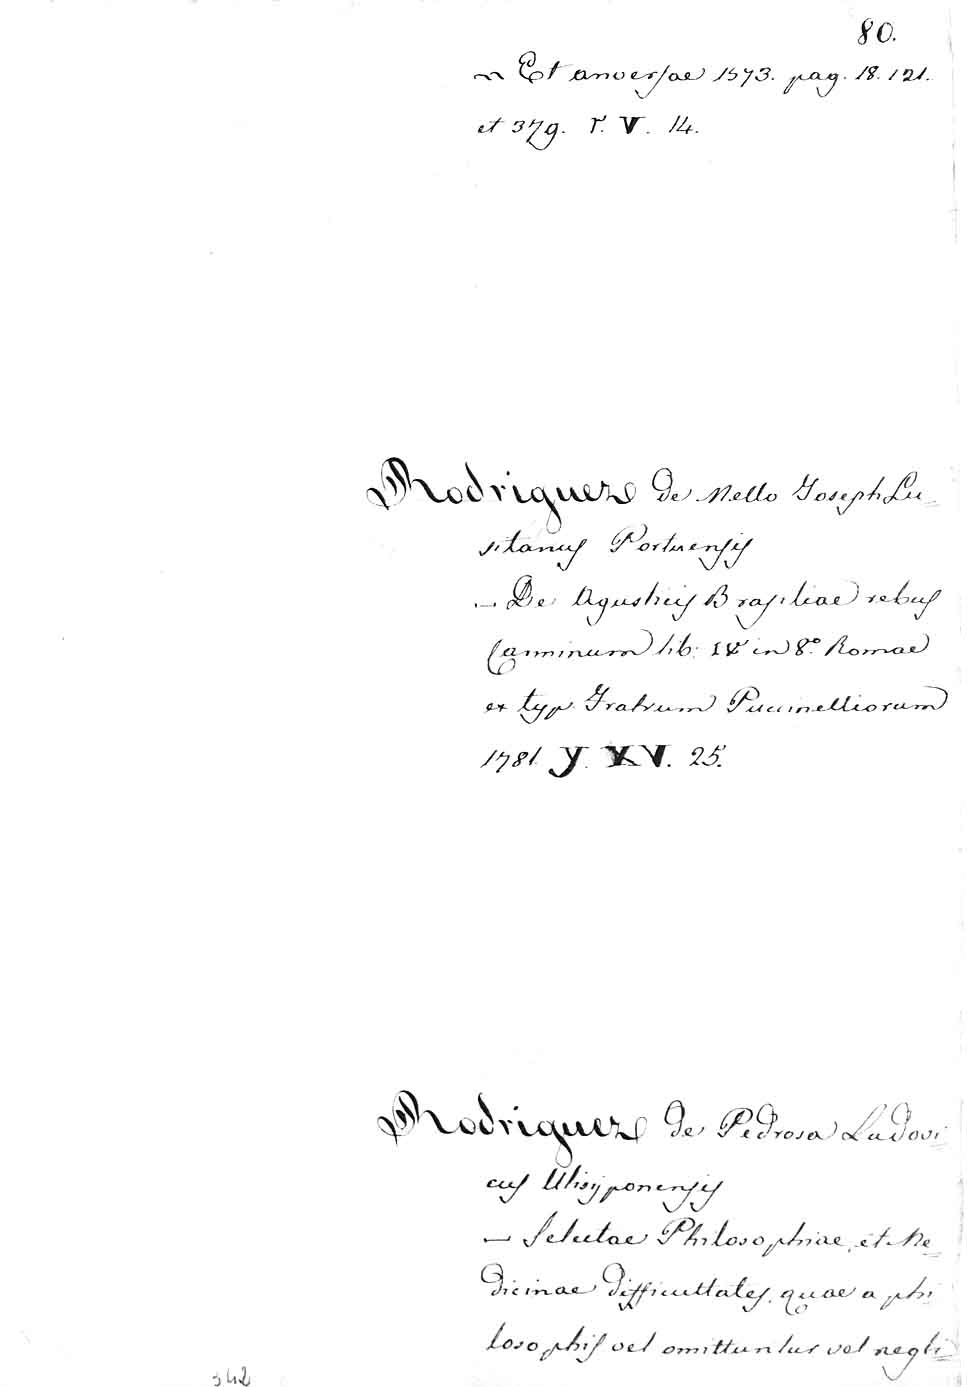 80.
~ Et anversae 1573. pag. 18. 121.
et 379. r. V. 14.
Rodriguez de Mello Joseph Lu_
sitanus Portuensis
_ De Rgusticis Brasiliae rebus
Carminum lib: IV in 8.º Romae
ex typ Fratrum Puccinelliorum
1781. Y. XV. 25.
Rodriguez de Pedrosa Ludovi_
cus Ulisyponensis
_ Selectae Philosophiae, et Me_
dicinae difficultates, quae a phi
losophis vel omittuntur vel negli
342